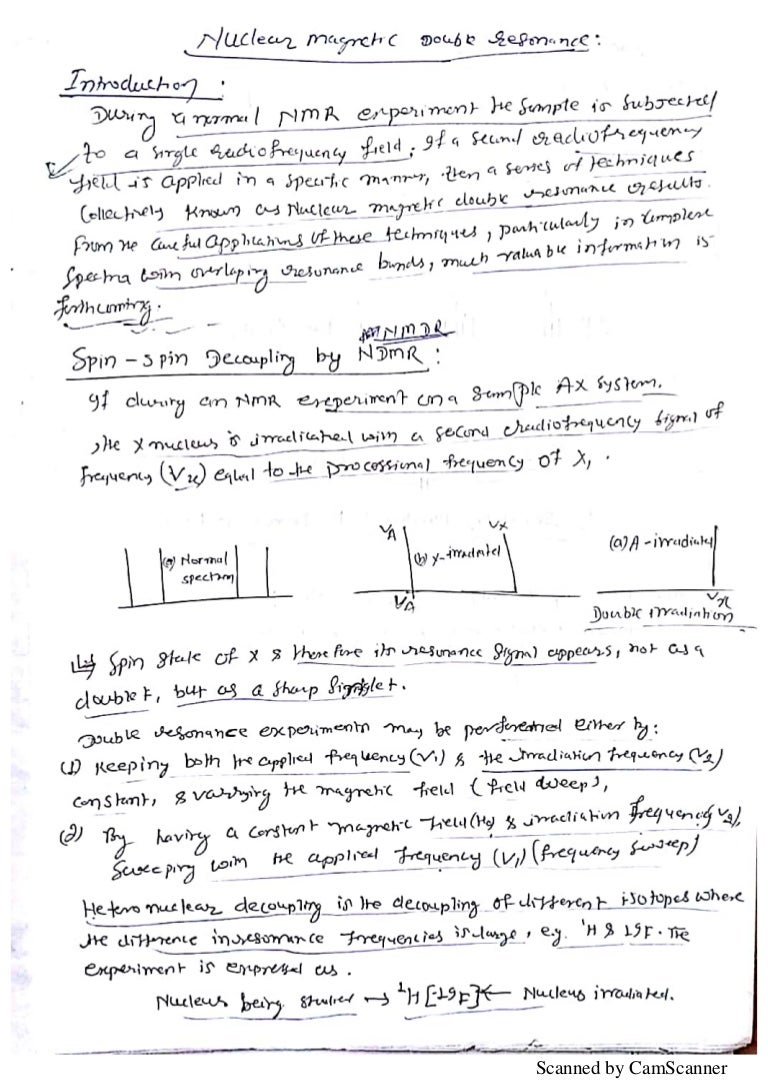 Nuclear magnetic Double resonance:
Introduction:
During a normal NMR experiment the sample is subjected
to a single radiofrequency field. If a second radiofrequency
field is applied in a specific manner, then a series of techniques
Collectively known as Nuclear magnetic double resonance results.
From the careful applications of these techniques, particularly in complex
spectra with overlaping resonance bands, much valuable information is
forthcoming.
NMDR
Spin-spin Decoupling by NDMR:
If during an NMR experiment on a sample AX system.
the X nucleus is irradicated with a second radiofrequency signal of
frequency (Vx) equal to the processional frequency of X,.
VA Vx
(a) Normal spectrum (b) X-irradiated (a) A-irradiated
VA Vx
Double irradiation
Spin state of X & therefore its resonance signal appears, not as a
doublet, but as a sharp singlet.
Double resonance experiments may be performed either by:
(1) Keeping both the applied frequency (V1) & the irradiation frequency (V2)
constant, & varying the magnetic field (field sweep),
(2) By having a constant magnetic field (H0) & irradiation frequency (V2),
Sweeping with the applied frequency (V1) (frequency sweep)
Heteronuclear decoupling is the decoupling of different isotopes where
the difference in resonance frequencies is large, e.g. 1H & 19F. The
experiment is expressed as.
Nucleus being studied → 1H [-19F] ← Nucleus irradiated.
Scanned by CamScanner